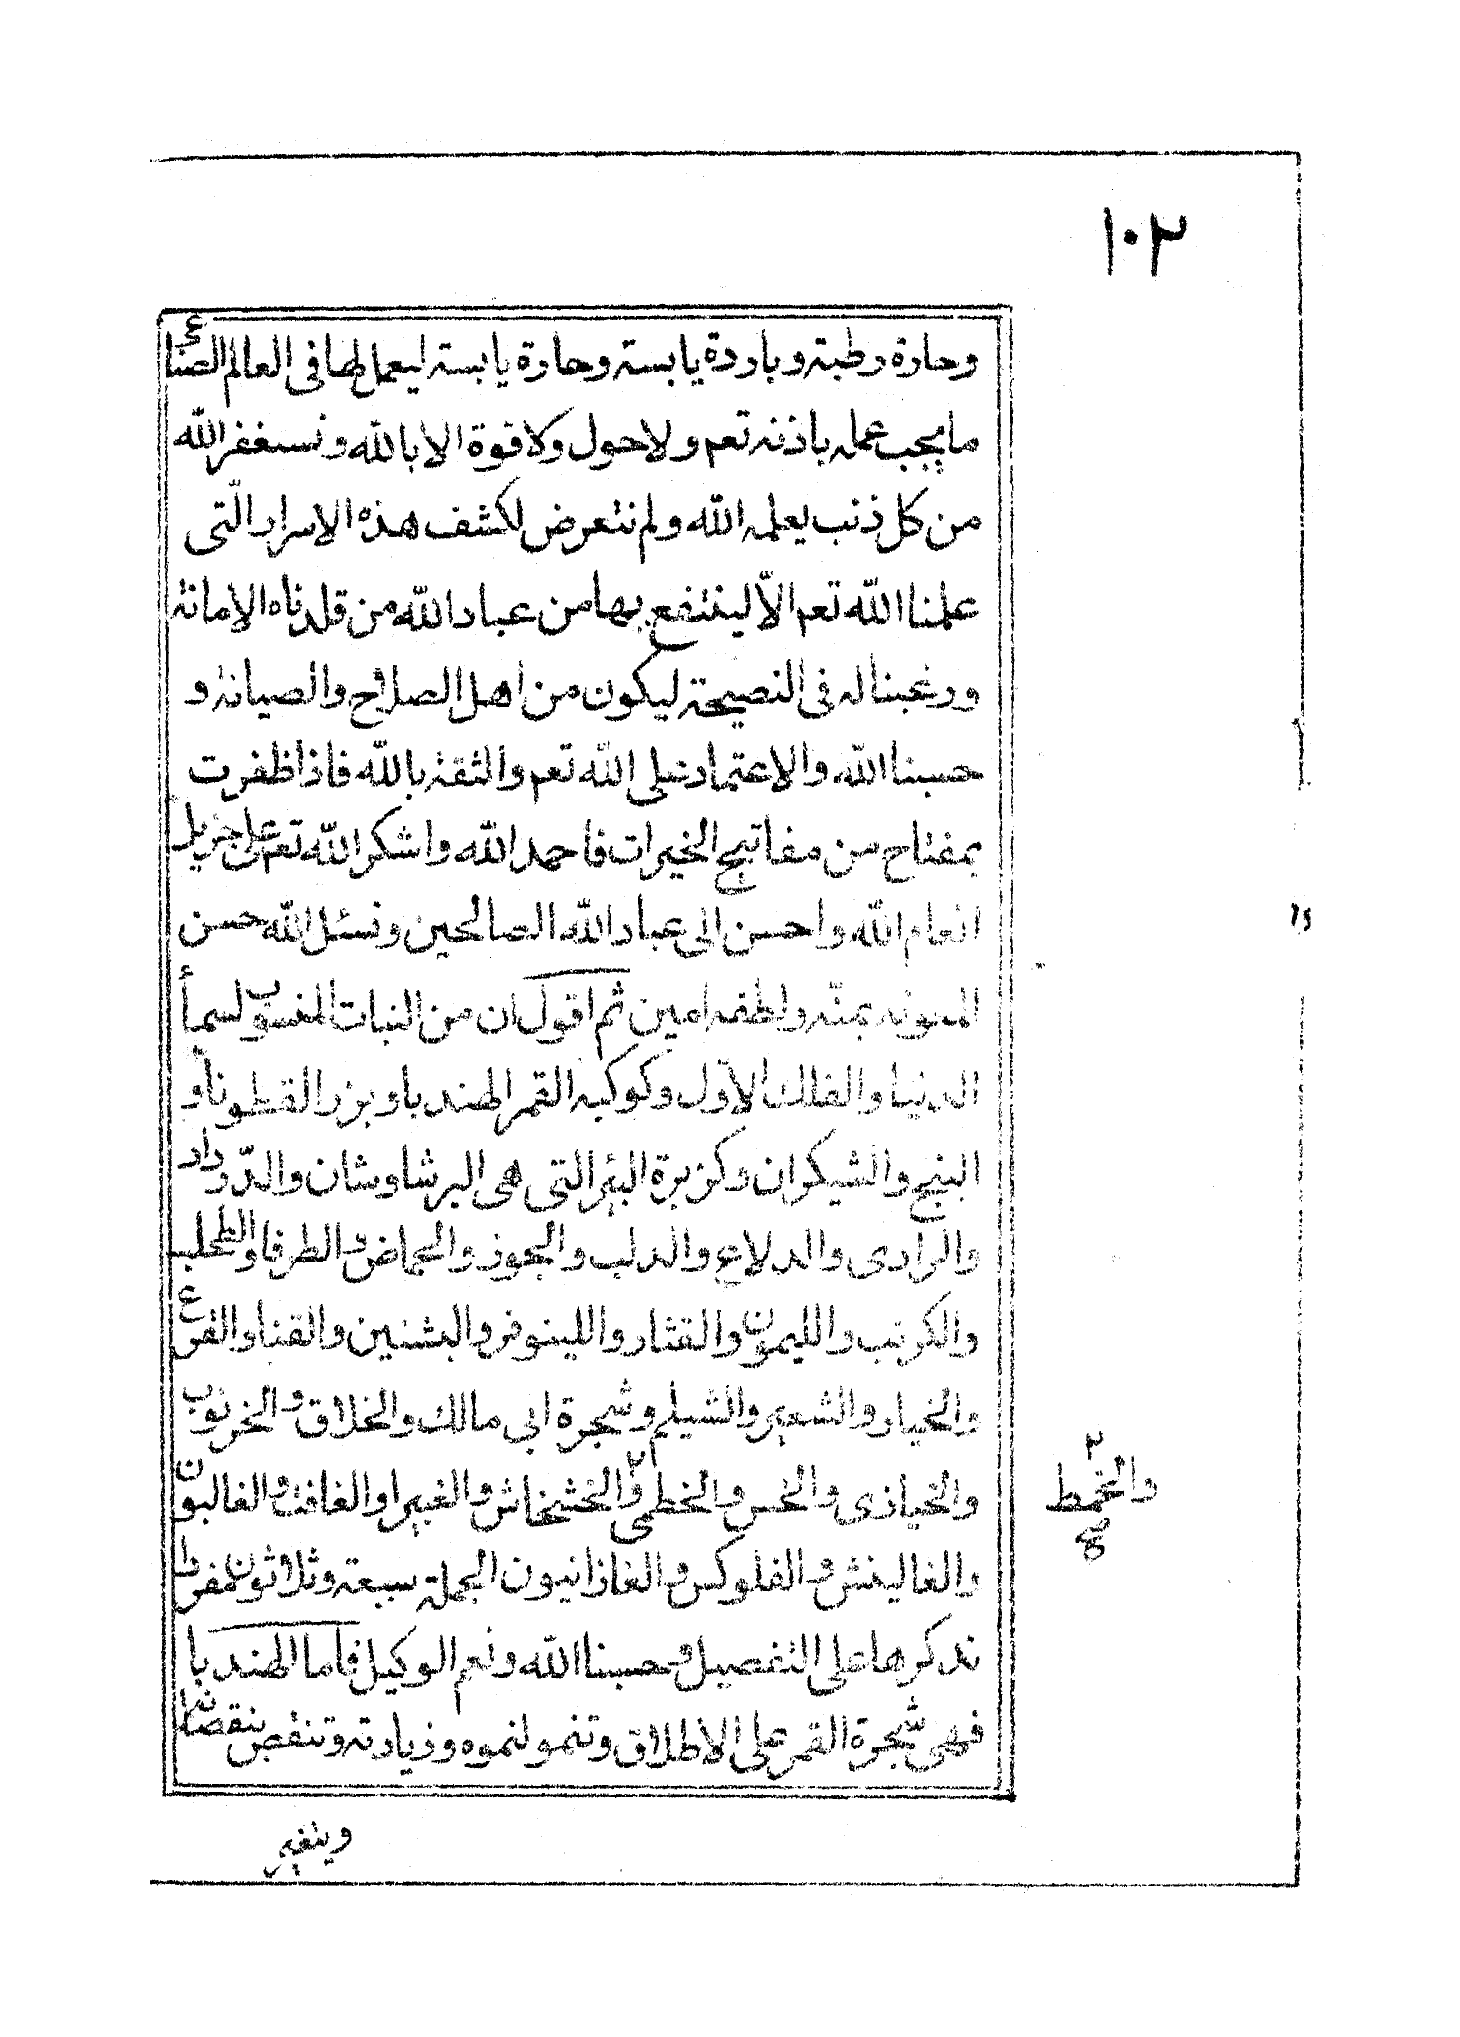 ١٠٢
وحارة رطبة وباردة يابسة وحارة يابسة ليعمل لها فى العالم الصناعى
ما يجب عمله باذنه تعم ولا حول ولا قوة الا بالله ونستغفر الله
من كل ذنب يعلمه الله ولم نتعرض لكشف هذه الاسرار الّتى
علمنا الله تعم الاّ لينتفع بها من عباد الله من قلدناه الامانة
ورغبنا له فى النصيحة ليكون من اهل الصلاح والصيانة و
حسبنا الله والاعتماد على الله تعم والثقة بالله فاذا ظفرت
بمفتاح من مفاتيح الخيرات فاحمد الله واشكر الله تعم على جزيل
انعام الله واحسن الى عباد الله الصالحين ونسئل الله حسن
المعونة بمنّه ولطفه امين ثم اقول ان من النبات المنسوب لسماء
الدنيا والفلك الاول وكوكبه القمر الهندبا وبزر القطونا و
البنج والشيكران وكزبرة البئر التى هى البرشاوشان والدّودار
والرادى والدلاع والدلب والجوز والحماض والطرفا والطحلب
والكرنب والليمون والقثار واللينوفر والبشنين والقنا والقرع
والخيار والشعير والشيلم وشجرة ابى مالك والخلاف والخرنوب
والخبازى والخس والخطمى والخشخاش والغبيرا والغافت والغالبون
والخمط
صح
والغاليغش والفلوكس والغاذانيون الجملة سبعة وثلاثون مفردا
نذكرها على التفصيل وحسبنا الله ونعم الوكيل فاما الهندبا
فهى شجرة القمر على الاطلاق وتنمو لنموه وزيادته وتنقص بنقصانه
ويتغير